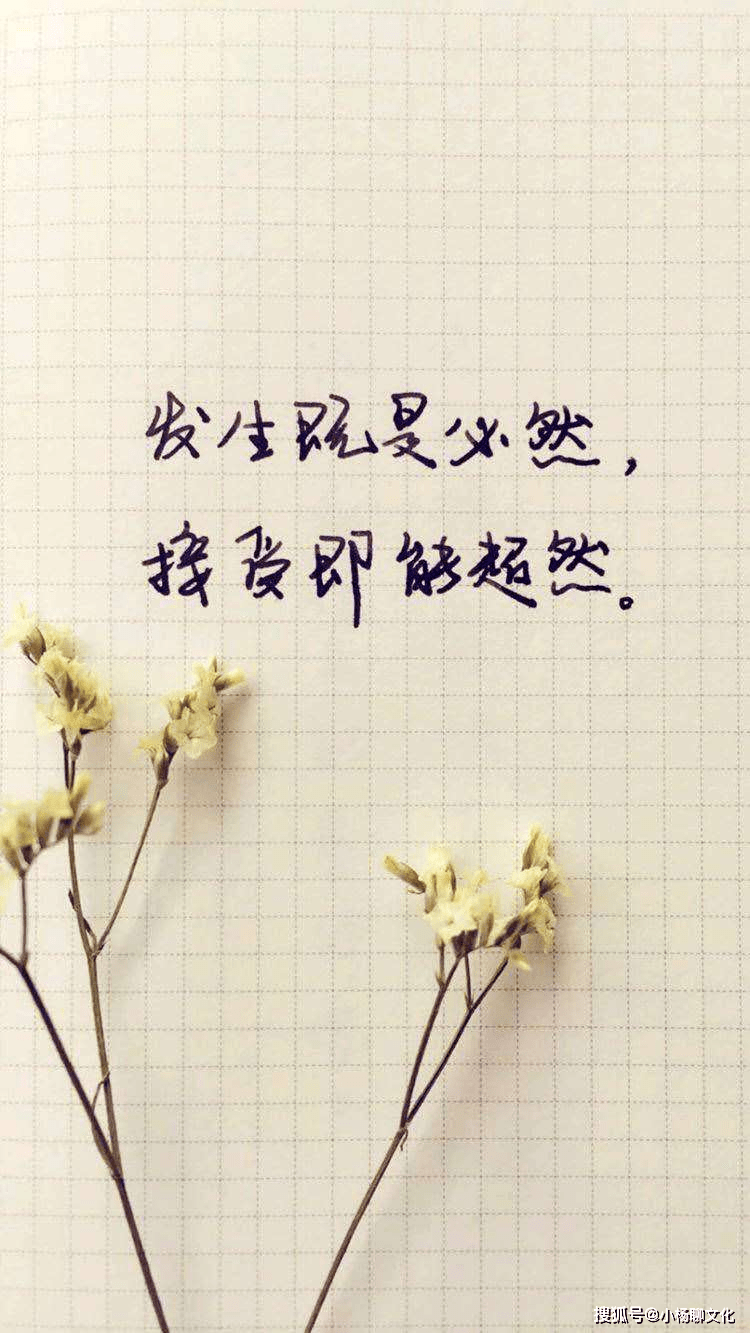 发生既是必然，
接受即能超然。
搜狐号@小杨聊文化